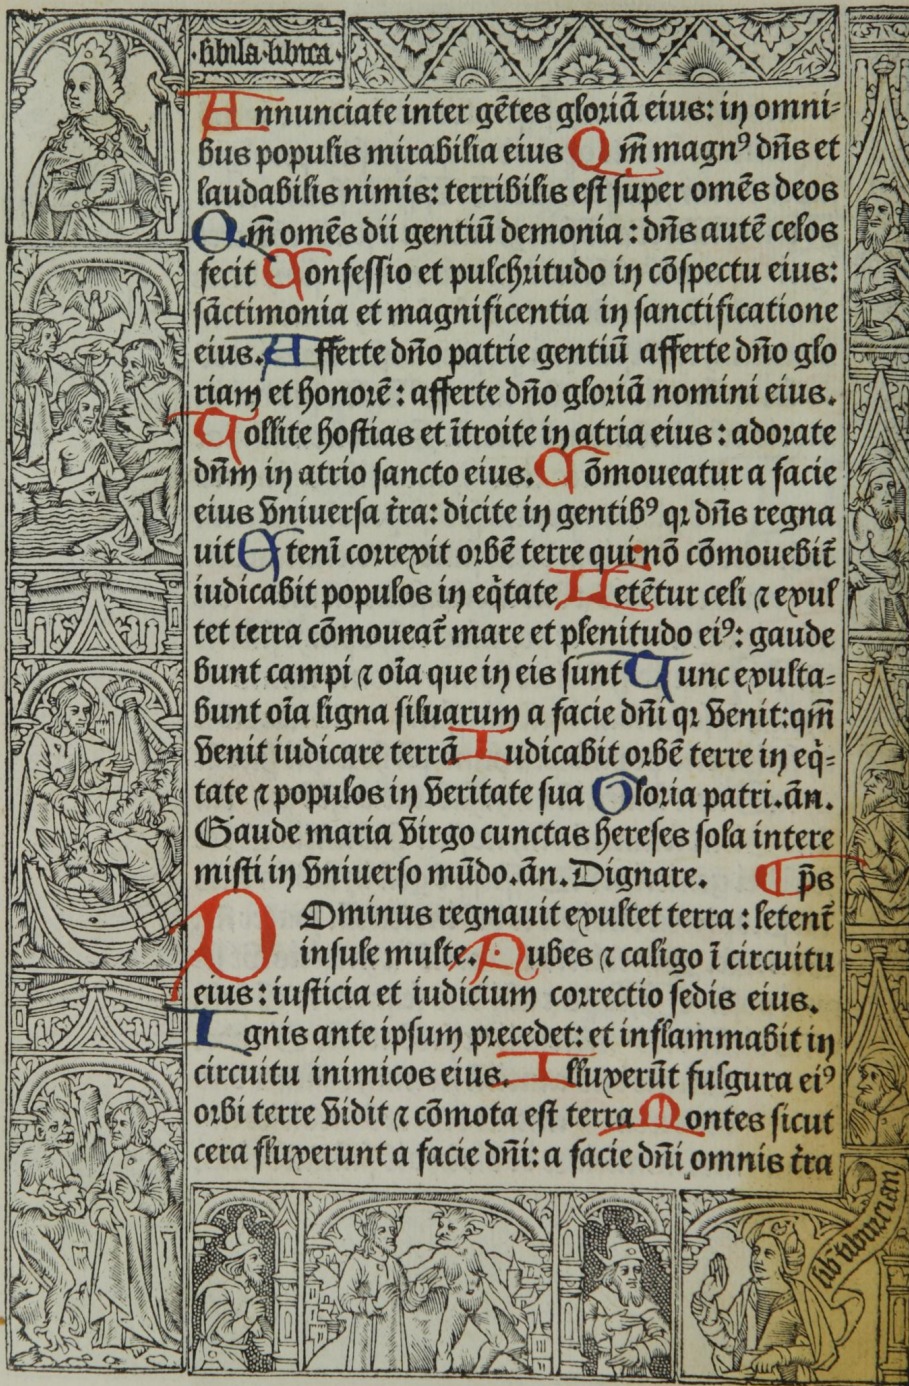 sibila libica
Annunciate inter gẽtes gloriã eius: in omni-
bus populis mirabilia eius Qm̃ magnꝰ dñs et
laudabilis nimis: terribilis est super omẽs deos
Qm̃ omẽs dii gentiũ demonia: dñs autẽ celos
fecit Confessio et pulchritudo in cõspectu eius:
sãctimonia et magnificentia in sanctificatione
eius. Afferte dño patrie gentiũ afferte dño glo
riam et honorẽ: afferte dño gloriã nomini eius.
Tollite hostias et ĩtroite in atria eius: adorate
dñm in atrio sancto eius. Cõmoueatur a facie
eius vniuersa t̃ra: dicite in gentibꝰ qꝛ dñs regna
uit Etenĩ correxit orbẽ terre qui nõ cõmouebit̃
iudicabit populos in eq̃tate Letẽtur celi ⁊ exul
tet terra cõmoueat̃ mare et plenitudo eiꝰ: gaude
bunt campi ⁊ oĩa que in eis sunt Tunc exulta-
bunt oĩa ligna siluarum a facie dñi qꝛ venit: qm̃
venit iudicare terrã Iudicabit orbẽ terre in eq̃-
tate ⁊ populos in veritate sua Gloria patri. ãn.
Gaude maria virgo cunctas hereses sola intere
misti in vniuerso mũdo. ãn. Dignare. p̃s
DOminus regnauit exultet terra: letent̃
insule multe. Nubes ⁊ caligo ĩ circuitu
eius: iusticia et iudicium correctio sedis eius.
Ignis ante ipsum precedet: et inflammabit in
circuitu inimicos eius. Illuxerũt fulgura eiꝰ
orbi terre vidit ⁊ cõmota est terra Montes sicut
cera fluxerunt a facie dñi: a facie dñi omnis t̃ra